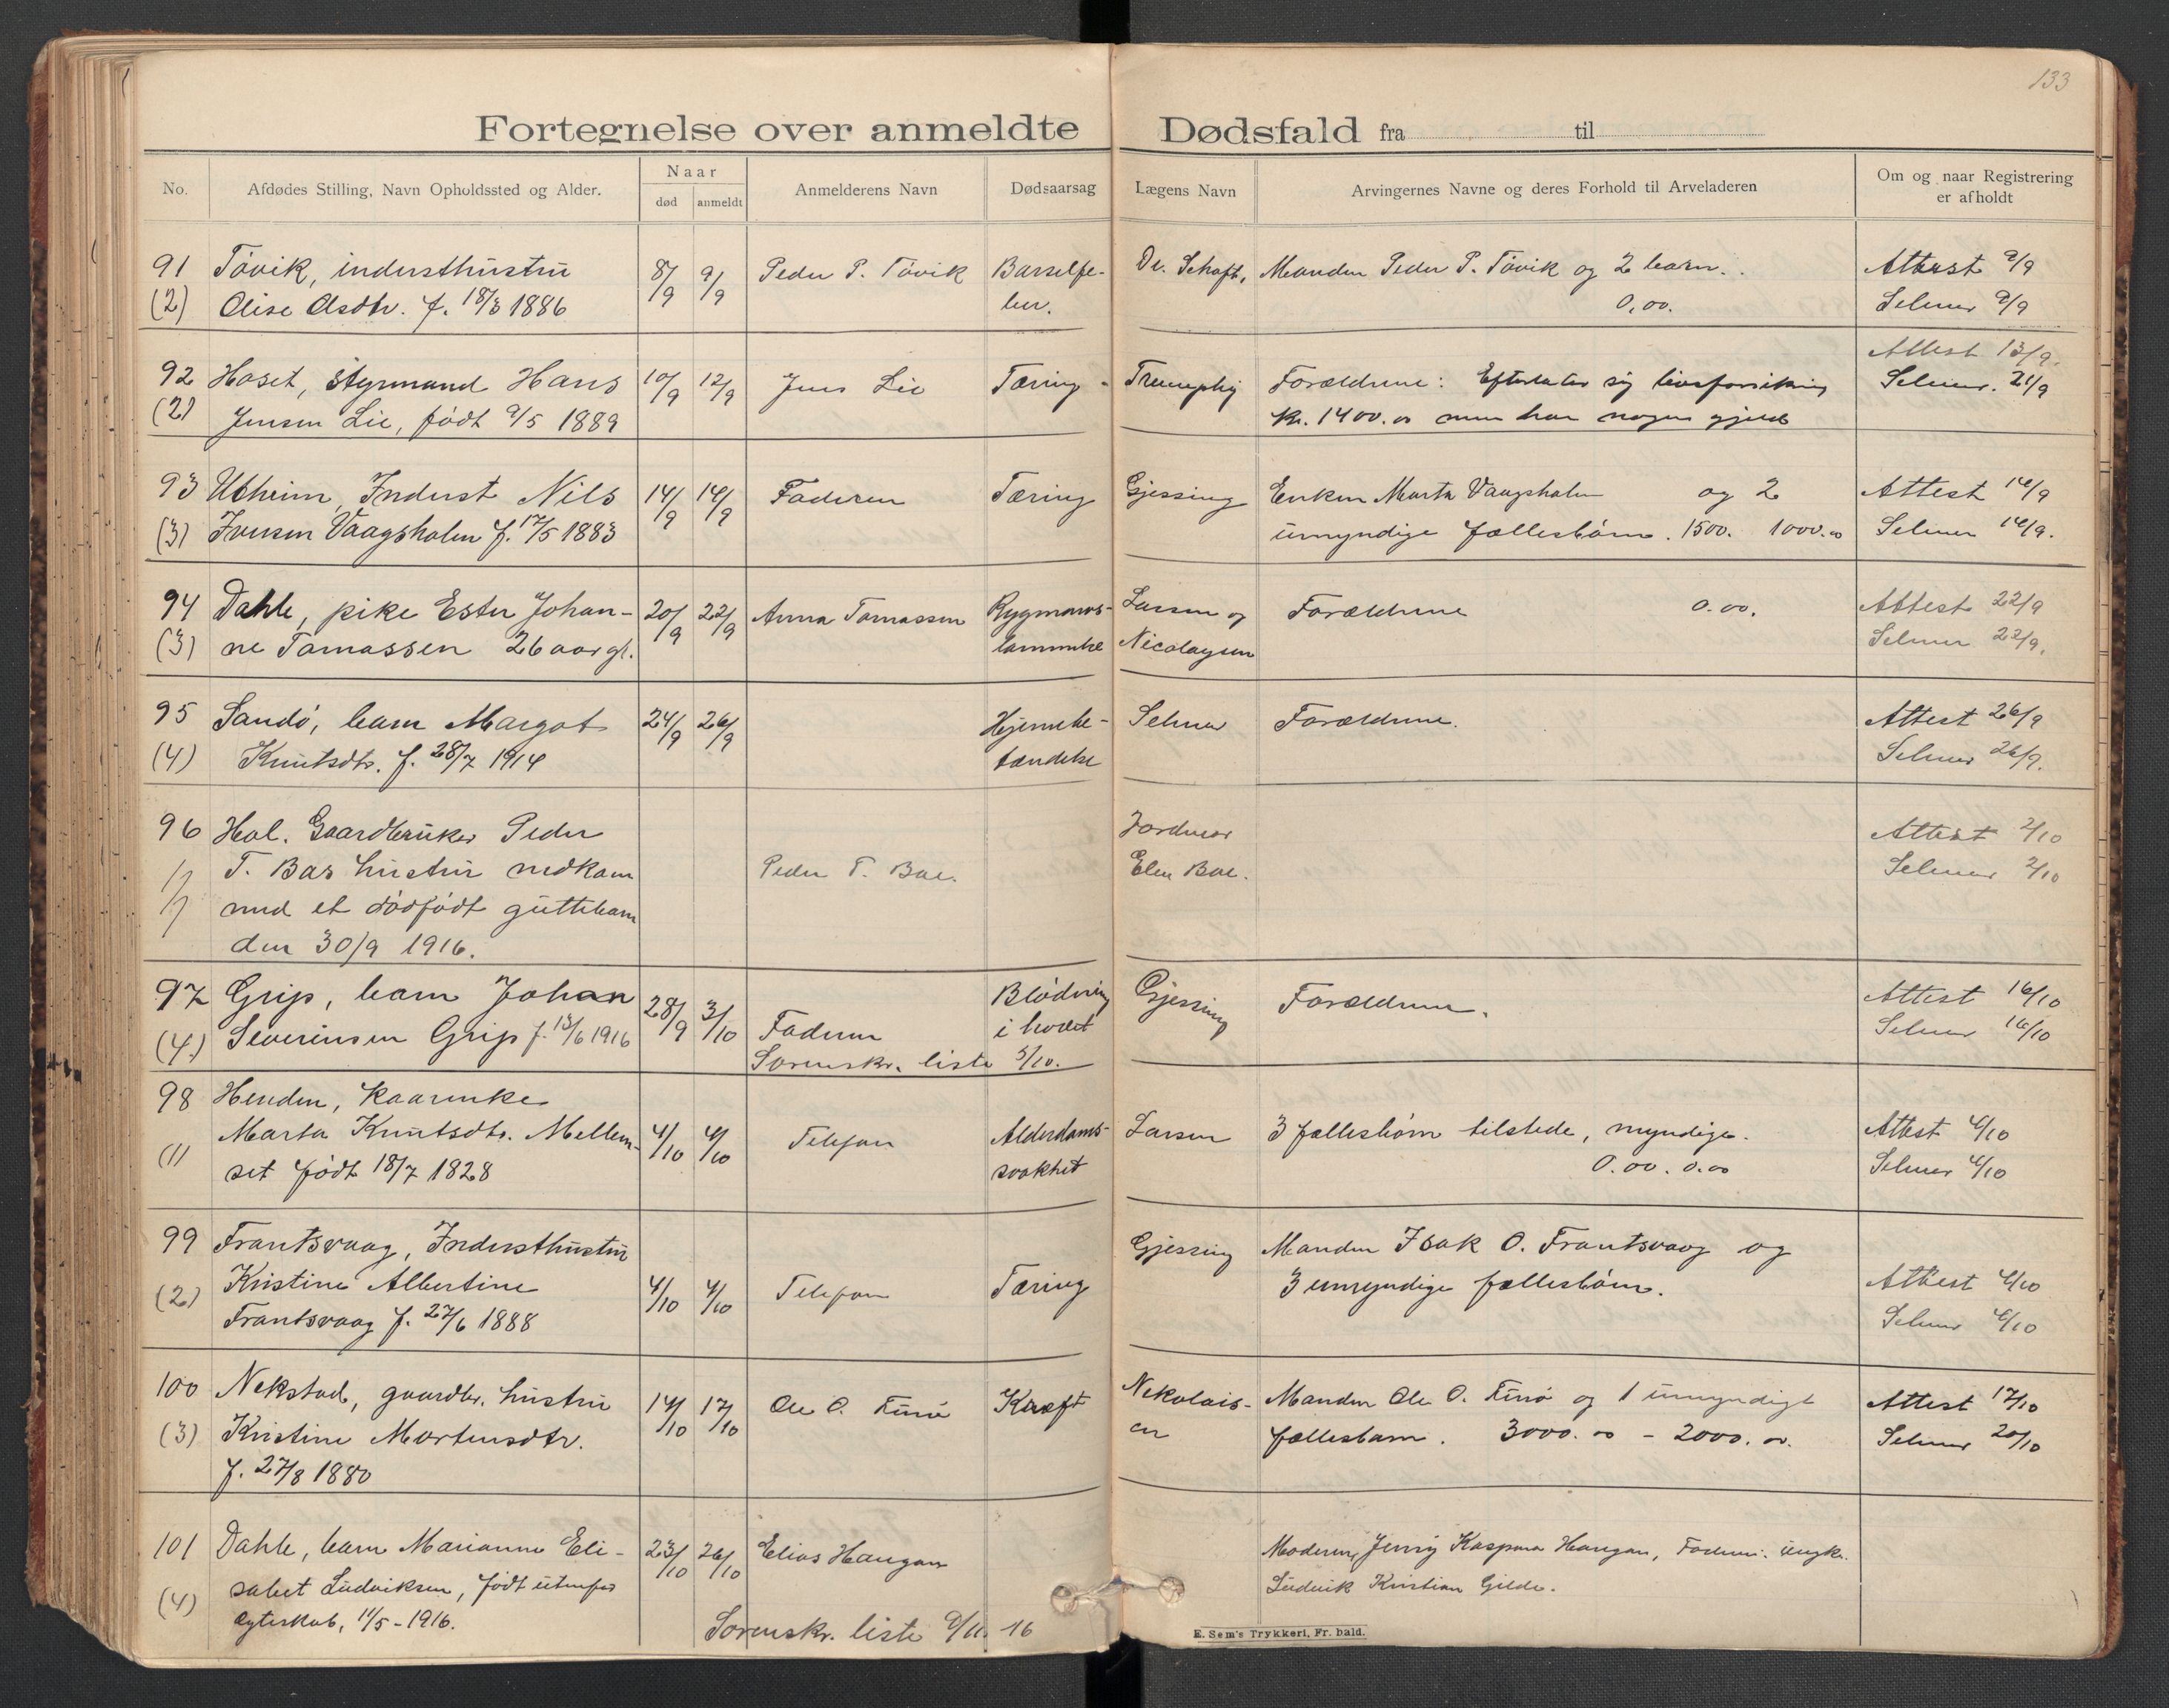 133
Fortegnelse over anmeldte Dødsfald fra til
No.
Afdødes Stilling, Navn Opholdssted og Alder.
Naar
død
anmeldt
Anmelderens Navn
Dødsaarsag
Lægens Navn
Arvingernes Navne og deres Forhold til Arveladeren
Om og naar Registrering
er afholdt
91 Tövik, indersthustru 8/9 9/9 Peder P. Tövik Barselfe- Dr. Schoft, Manden Peder P. Tövik og 2 barn. Attest 9/9
(2) Olise Olsdtr. f. 18/3 1886 ber. 0,00. Selmer 9/9
92 Hoset, styrmand Hans 10/9 12/9 Jens Lie Tæring Forældrene: Efterlater sig livsforsikring Attest 13/9.
(2) Jensen Lie, født 9/5 1889 Kr. 1400.00 men har nogen gjeld Selmer. 21/9
93 Utheim, Inderst Nils 14/9 14/9 Faderen Tæring Gjessing Enken Marta Vaagsholm og 2 Attest 16/9
(3) Iversen Vaagsholm f. 17/5 1883 umyndige fællesbörn. 1500. 1000.00 Selmer 16/9.
94 Dahle, pike Ester Johan- 20/9 22/9 Anna Tomassen Rygmarvs- Larsen og Forældrene 0.00. Attest 22/9
(3) ne Tomassen 26 aar gl. lammelse Nicolaysen Selmer 22/9.
95 Sandö, barn Margot 24/9 26/9 Hjernebe- Selmer Forældrene. Attest 26/9
(4) Knutsdtr. f. 28/7 1914 tændelse Selmer 26/9.
96 Hol. Gaardbruker Peder Jordmor Attest 2/10
T. Baes hustru nedkom Peder T. Boe. Elen Boe. Selmer 2/10
med et dødfødt guttebarn
den 30/9 1916.
97 Grip, barn Johan 28/9 3/10 Faderen Blödning Gjessing Forældrene. Attest 16/10
(4) Severinsen Grip f. 13/6 1916 i hodet Selmer 16/10
Sorenskr. liste 5/10.
98 Henden, kaarenke
Marta Knutsdtr. Mellem- 4/10 4/10 Telefon Alderdoms- Larsen 3 fællesbörn tilstede, myndige. Attest 6/10
(1) set født 18/7 1828 svakhet 0.00. 0.00 Selmer 6/10
99 Frantsvaag, Indersthustru Gjessing Manden Isak O. Frantsvaag og
(2) Kristine Albertine 4/10 4/10 Telefon Tæring 3 umyndige fællesbörn. Attest 6/10
Frantsvaag f. 27/6 1888 Selmer 6/10
100 Nekstad, gaardbr. hustru 14/10 17/10 Ole O. Kræft Nikolais- Manden Ole O. og 1 umyndigt Attest 17/10
(3) Kristine Mortensdtr. en fællesbarn. 3000.00 - 2000.00. Selmer 20/10
f. 27/8 1880
101 Dahle, barn Marianne Eli- 23/10 26/10 Elias Haugan Moderen, Jenny Haugan, Faderen: ungk.
(4) sabet Ludviksen, født utenfor Ludvik Kristian Gilde.
egteskab, 11/5 - 1916.
Sorenskr. liste 9/11. 16
E. Sem's Trykkeri, Fr. hald.